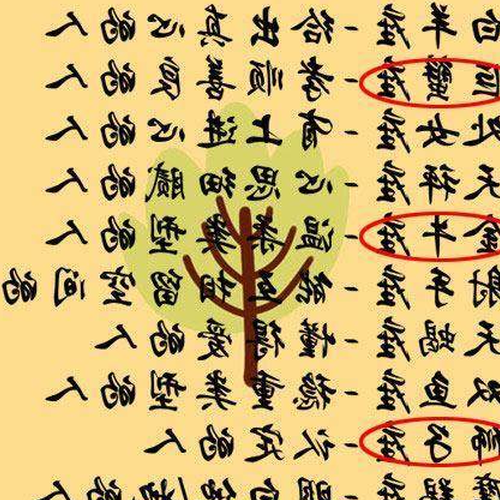 白羊座-给出真心的人
巨蟹座-孝顺善良的人
处女座-有上进心的人
天秤座-心思细腻的人
金牛座-温柔类型的人
射手座-能互相留空间的
天蝎座-懂得爱的人
双鱼座-稳重类型的人
狮子座-认定的人